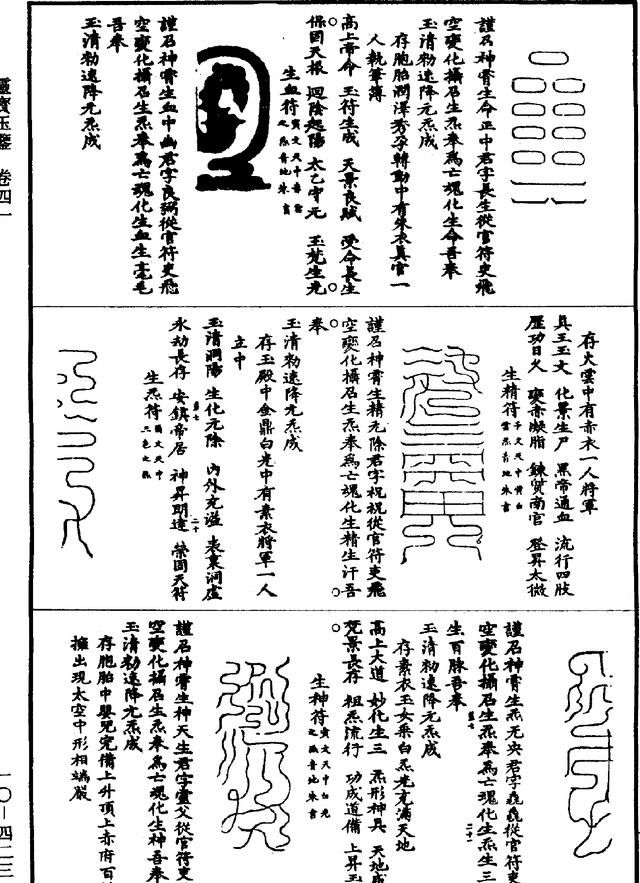 謹召神霄生命正中君字長生從官符吏飛
空變化攝召生炁奉為亡魂化生命吾奉
玉清勑速降元炁成
存胞胎潤澤秀孕轉動中有朱衣真官一
人執筆簿
高上帝命　玉符生成　天景良賦　受命長生
保固天根　迴陰起陽　太乙守元　玉梵生光
生血符
謹召神霄生血中幽君字良弼從官符吏飛
空變化攝召生炁奉為亡魂化生血生毫毛
吾奉
玉清勑速降元炁成
存火雲中有赤衣一人將軍
真王玉文　化景生尸　黑帝通血　流行四肢
歷功日火　變赤凝脂　鍊質南宮　登昇太微
生精符
謹召神霄生精元除君字祝祝從官符吏飛
空變化攝召生炁奉為亡魂化生精生汗吾
奉
玉清勑速降元炁成
存玉殿中金鼎白光中有素衣將軍一人
立中
玉清洞陽　生化元除　內外充溢　表裏洞虛
永劫長存　安鎮帝居　神昇明達　榮固天符
生炁符
謹召神霄生炁无央君字毳毳從官符吏
空變化攝召生炁奉為亡魂化生炁生三
生百脉吾奉
玉清勑速降元炁成
存素衣玉女乘白炁光充滿天地
高上大道　妙化生三　炁形神具　天地成
梵景長存　祖炁流行　功成道備　上昇玉
生神符
謹召神霄生神天生君字靈父從官符吏
空變化攝召生炁奉為亡魂化生神吾奉
玉清勑速降元炁成
存胞胎中嬰兒完備上外頂上赤府百
擁出現太空中形相端嚴
靈寶玉鑒　卷四一
一〇—四二三